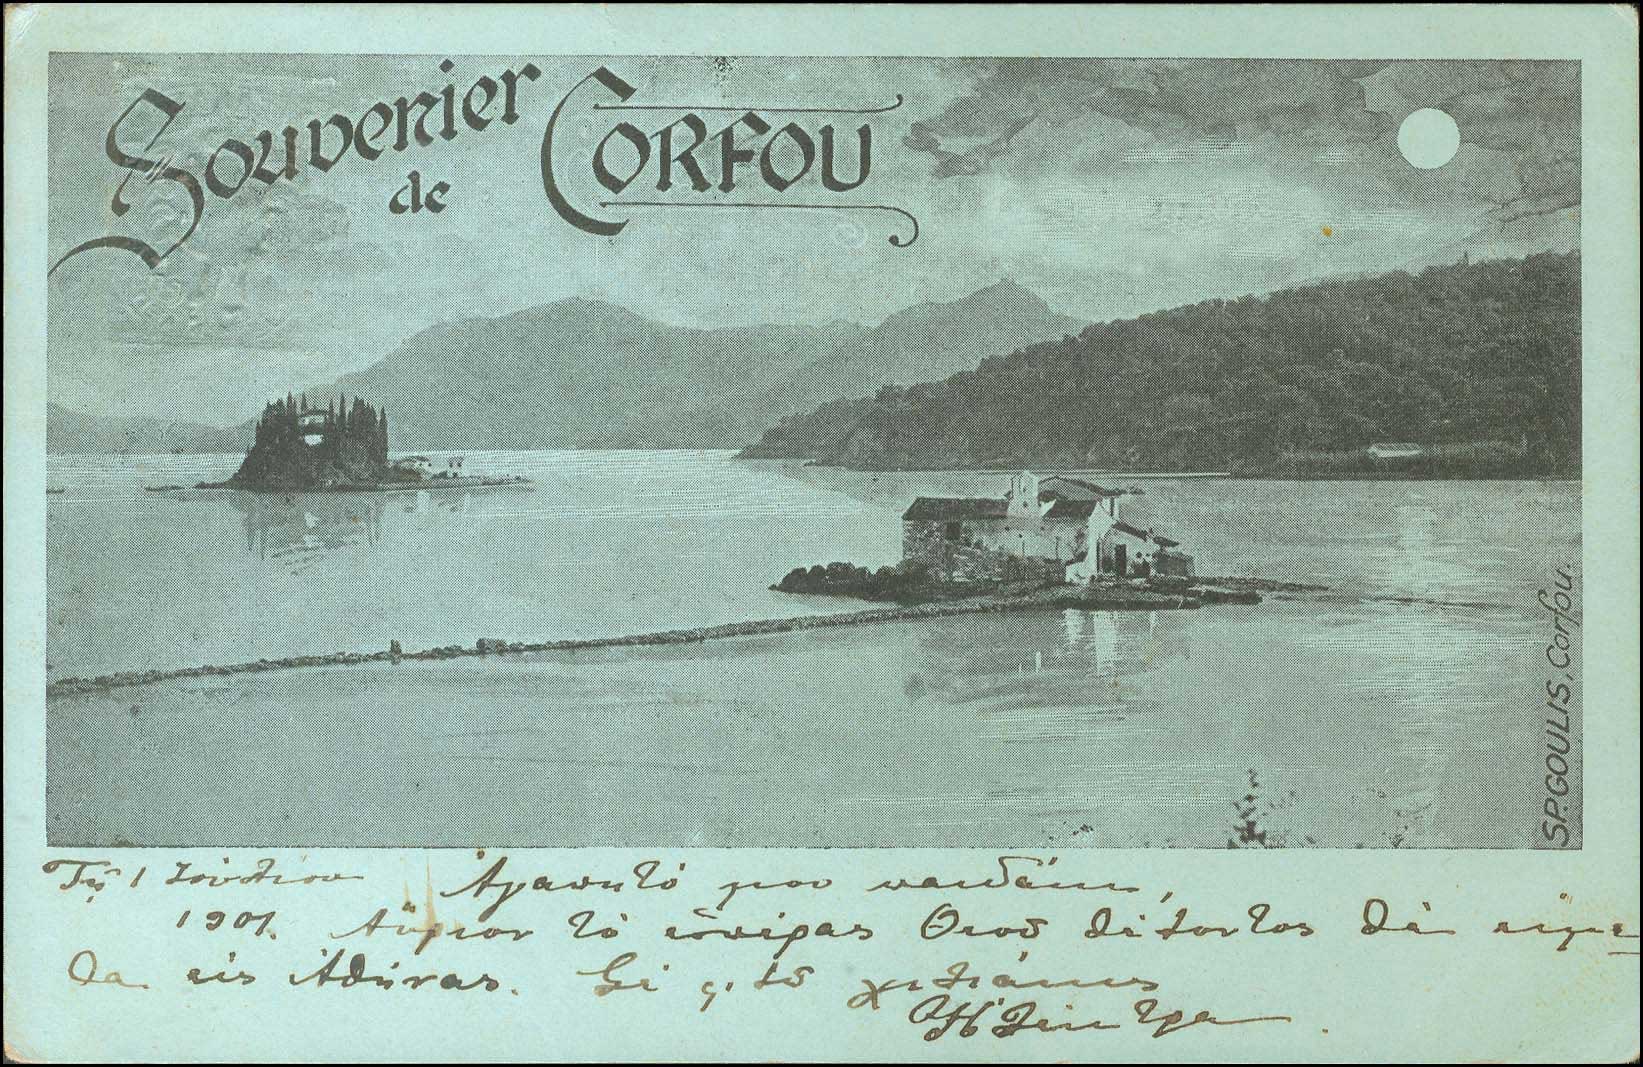 Souvenier
de
CORFOU
SP. GOULIS, Corfou.
Τῇ 1 Ἰουλίου Ἀγαπητό μου παιδάκι,
1901. Αὔριον τὸ ἑσπέρας Θεοῦ θέλοντος θὰ εἴμε
θα εἰς Ἀθήνας. Σὲ